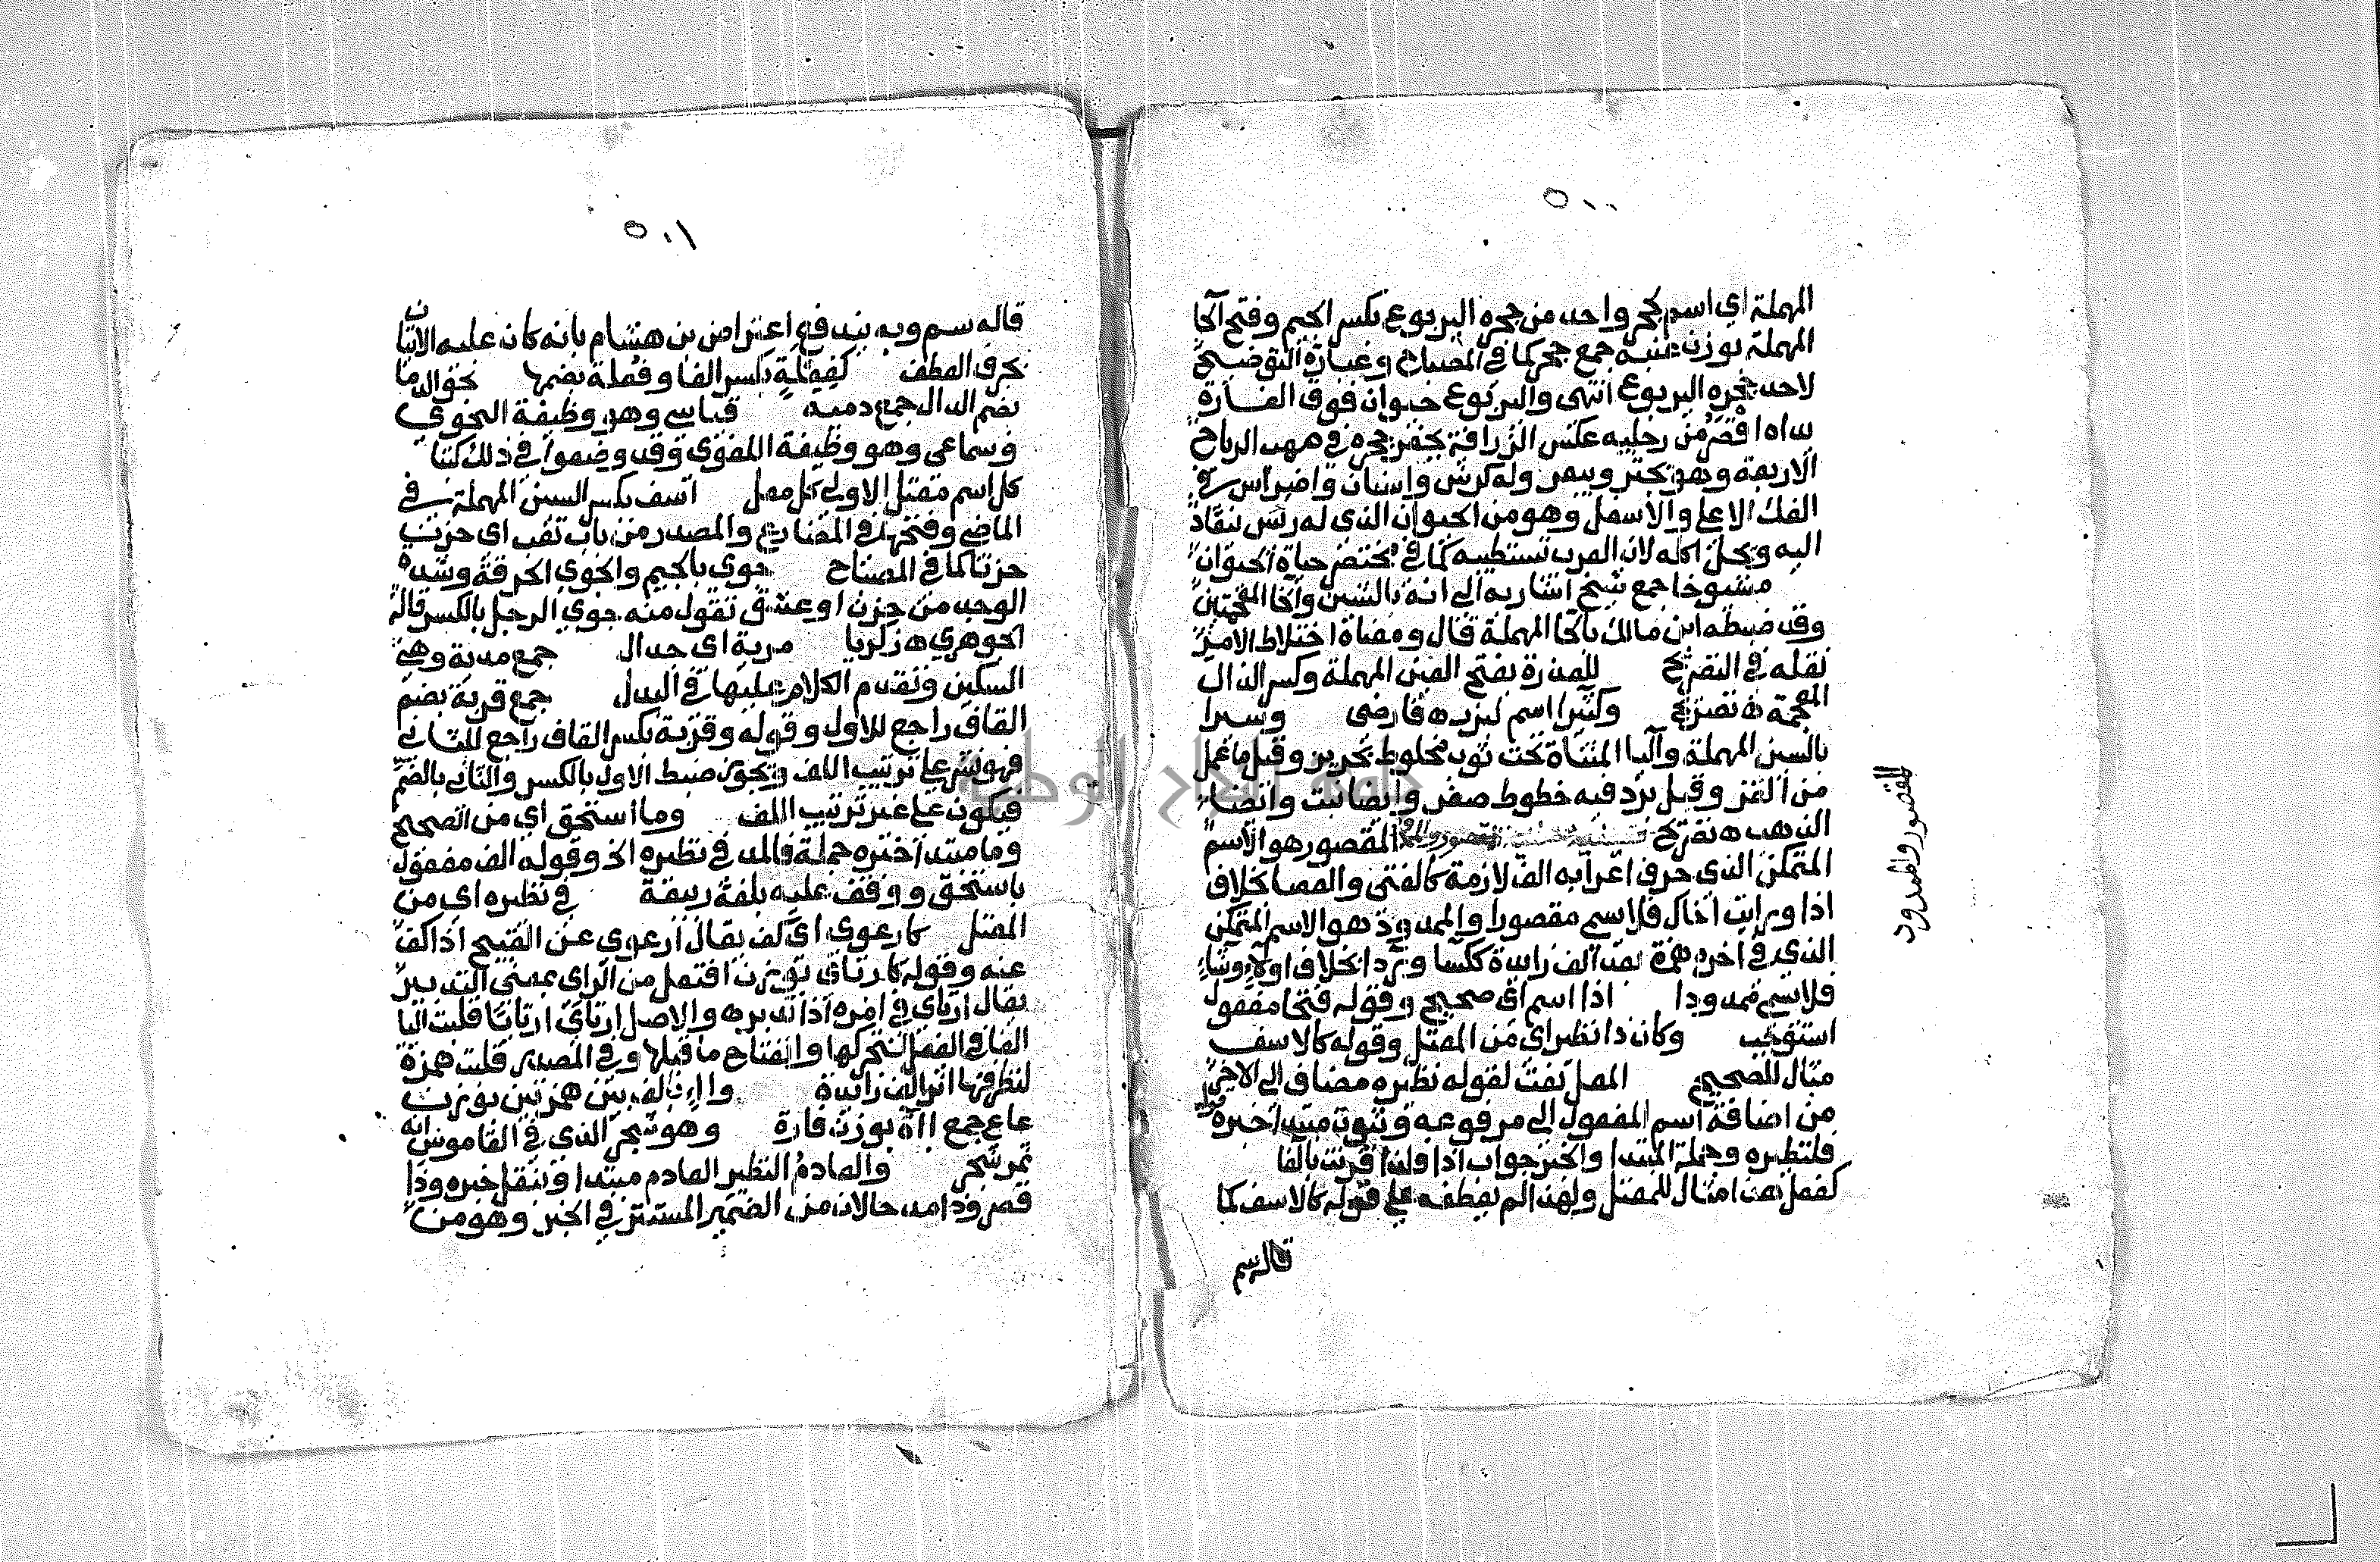 ٥٠٠
المهملة اي اسم لجحر واحد من جحرة اليربوع بكسر الجيم وفتح الحا
المهملة بوزن عنبة جمع جحر كما في المصباح وعبارة التوضيح
لاحد جحرة اليربوع انتهى واليربوع حيوان فوق الفارة
يداه اقصر من رجليه عكس الزرافة يحفر جحره في مهب الرياح
الاربعة وهو يجتر ويبعر وله كرش واسنان واضراس في
الفك الاعلى والاسفل وهو من الحيوان الذي له رئيس ينقاد
اليه ويحل اكله لان العرب تستطيبه كما في مختصر حياة الحيوان
مشيوخا جمع شيخ اشار به الى انه بالشين والخا المعجمتين
وقد ضبطه ابن مالك بالحا المهملة قال ومعناه اختلاط الامر
نقله في التصريح للعذرة بفتح العين المهملة وكسر الذال
المعجمة ه تصريح وكثيرا اسم لبزر ه فارضى وسيرا
بالسين المهملة واليا المثناة تحت ثوب مخلوط بحرير وقيل ما عمل
من القز وقيل برد فيه خطوط صفر وايضا نبت وايضا
الذهب ه تصريح المقصور هو الاسم
المتمكن الذي حرف اعرابه الف لازمة كالفتى والعصا بخلاف
اذا ورايت اخاك فلا يسمى مقصورا والممدود هو الاسم المتمكن
الذي في اخره همزة بعد الف زايدة ككسا وردا بخلاف اولاء وشاء
فلا يسمى ممدودا اذا اسم اي صحيح وقوله فتحا مفعول
استوجب وكان ذا نظير اي من المعتل وقوله كالاسف
مثال للصحيح المعل نعت لقوله نظيره مضاف الى الاخر
من اضافة اسم المفعول الى مرفوعه وثبوت مبتدا خبره
فلنظيره وجملة المبتدا والخبر جواب اذا ولذا قرنت بالفا
كفعل هذا مثال للمعتل ولهذا لم يعطفه على قوله كالاسف كما
قاله سم
المقصور والممدود
٥٠١
قاله سم وبه يندفع اعتراض بن هشام بانه كان عليه الاتيان
بحرف العطف كفعلة بكسر الفا وفعلة بضمها نحو الدما
بضم الدال جمع دمية قياسي وهو وظيفة النحوي
وسماعي وهو وظيفة اللغوي وقد وضعوا في ذلك كتبا
كل اسم معتل الاولى كل معل اسف بكسر السين المهملة في
الماضي وفتحها في المضارع والمصدر من باب تعب اي حزن
حزنا كما في المصباح جوي بالجيم والجوي الحرقة وشدة
الوجد من حزن او عشق تقول منه جوي الرجل بالكسر قاله
الجوهري ه زكريا مرية اي جدال جمع مدية وهي
السكين وتقدم الكلام عليها في البدل جمع قربة بضم
القاف راجع للاول وقوله وقربة بكسر القاف راجع للثاني
فهو نشر على ترتيب اللف ويجوز ضبط الاول بالكسر والثاني بالضم
فيكون على غير ترتيب اللف وما استحق اي من الصحيح
وما مبتدا خبره جملة فالمد في نظيره الخ وقوله الف مفعول
باستحق ووقف عليه بلغة ربيعة في نظيره اي من
المعتل كارعوى اي كف يقال ارعوى عن القبيح اذا كف
عنه وقوله كارتاى بوزن افتعل من الراي بمعنى التدبير
يقال ارتاى في امره اذا تدبره والاصل ارتاي ارتايا قلبت اليا
الفا في الفعل لتحركها وانفتاح ما قبلها وفي المصدر قلبت همزة
لتطرفها اثر الف زايدة والاء بالف بين همزتين بوزن
عاع جمع الاة بوزن فارة وهو شجر الذي في القاموس انه
ثمر شجر والعادم النظير العادم مبتدا وبنقل خبره وذا
قصر وذا مد حالان من الضمير المستتر في الخبر وهو من